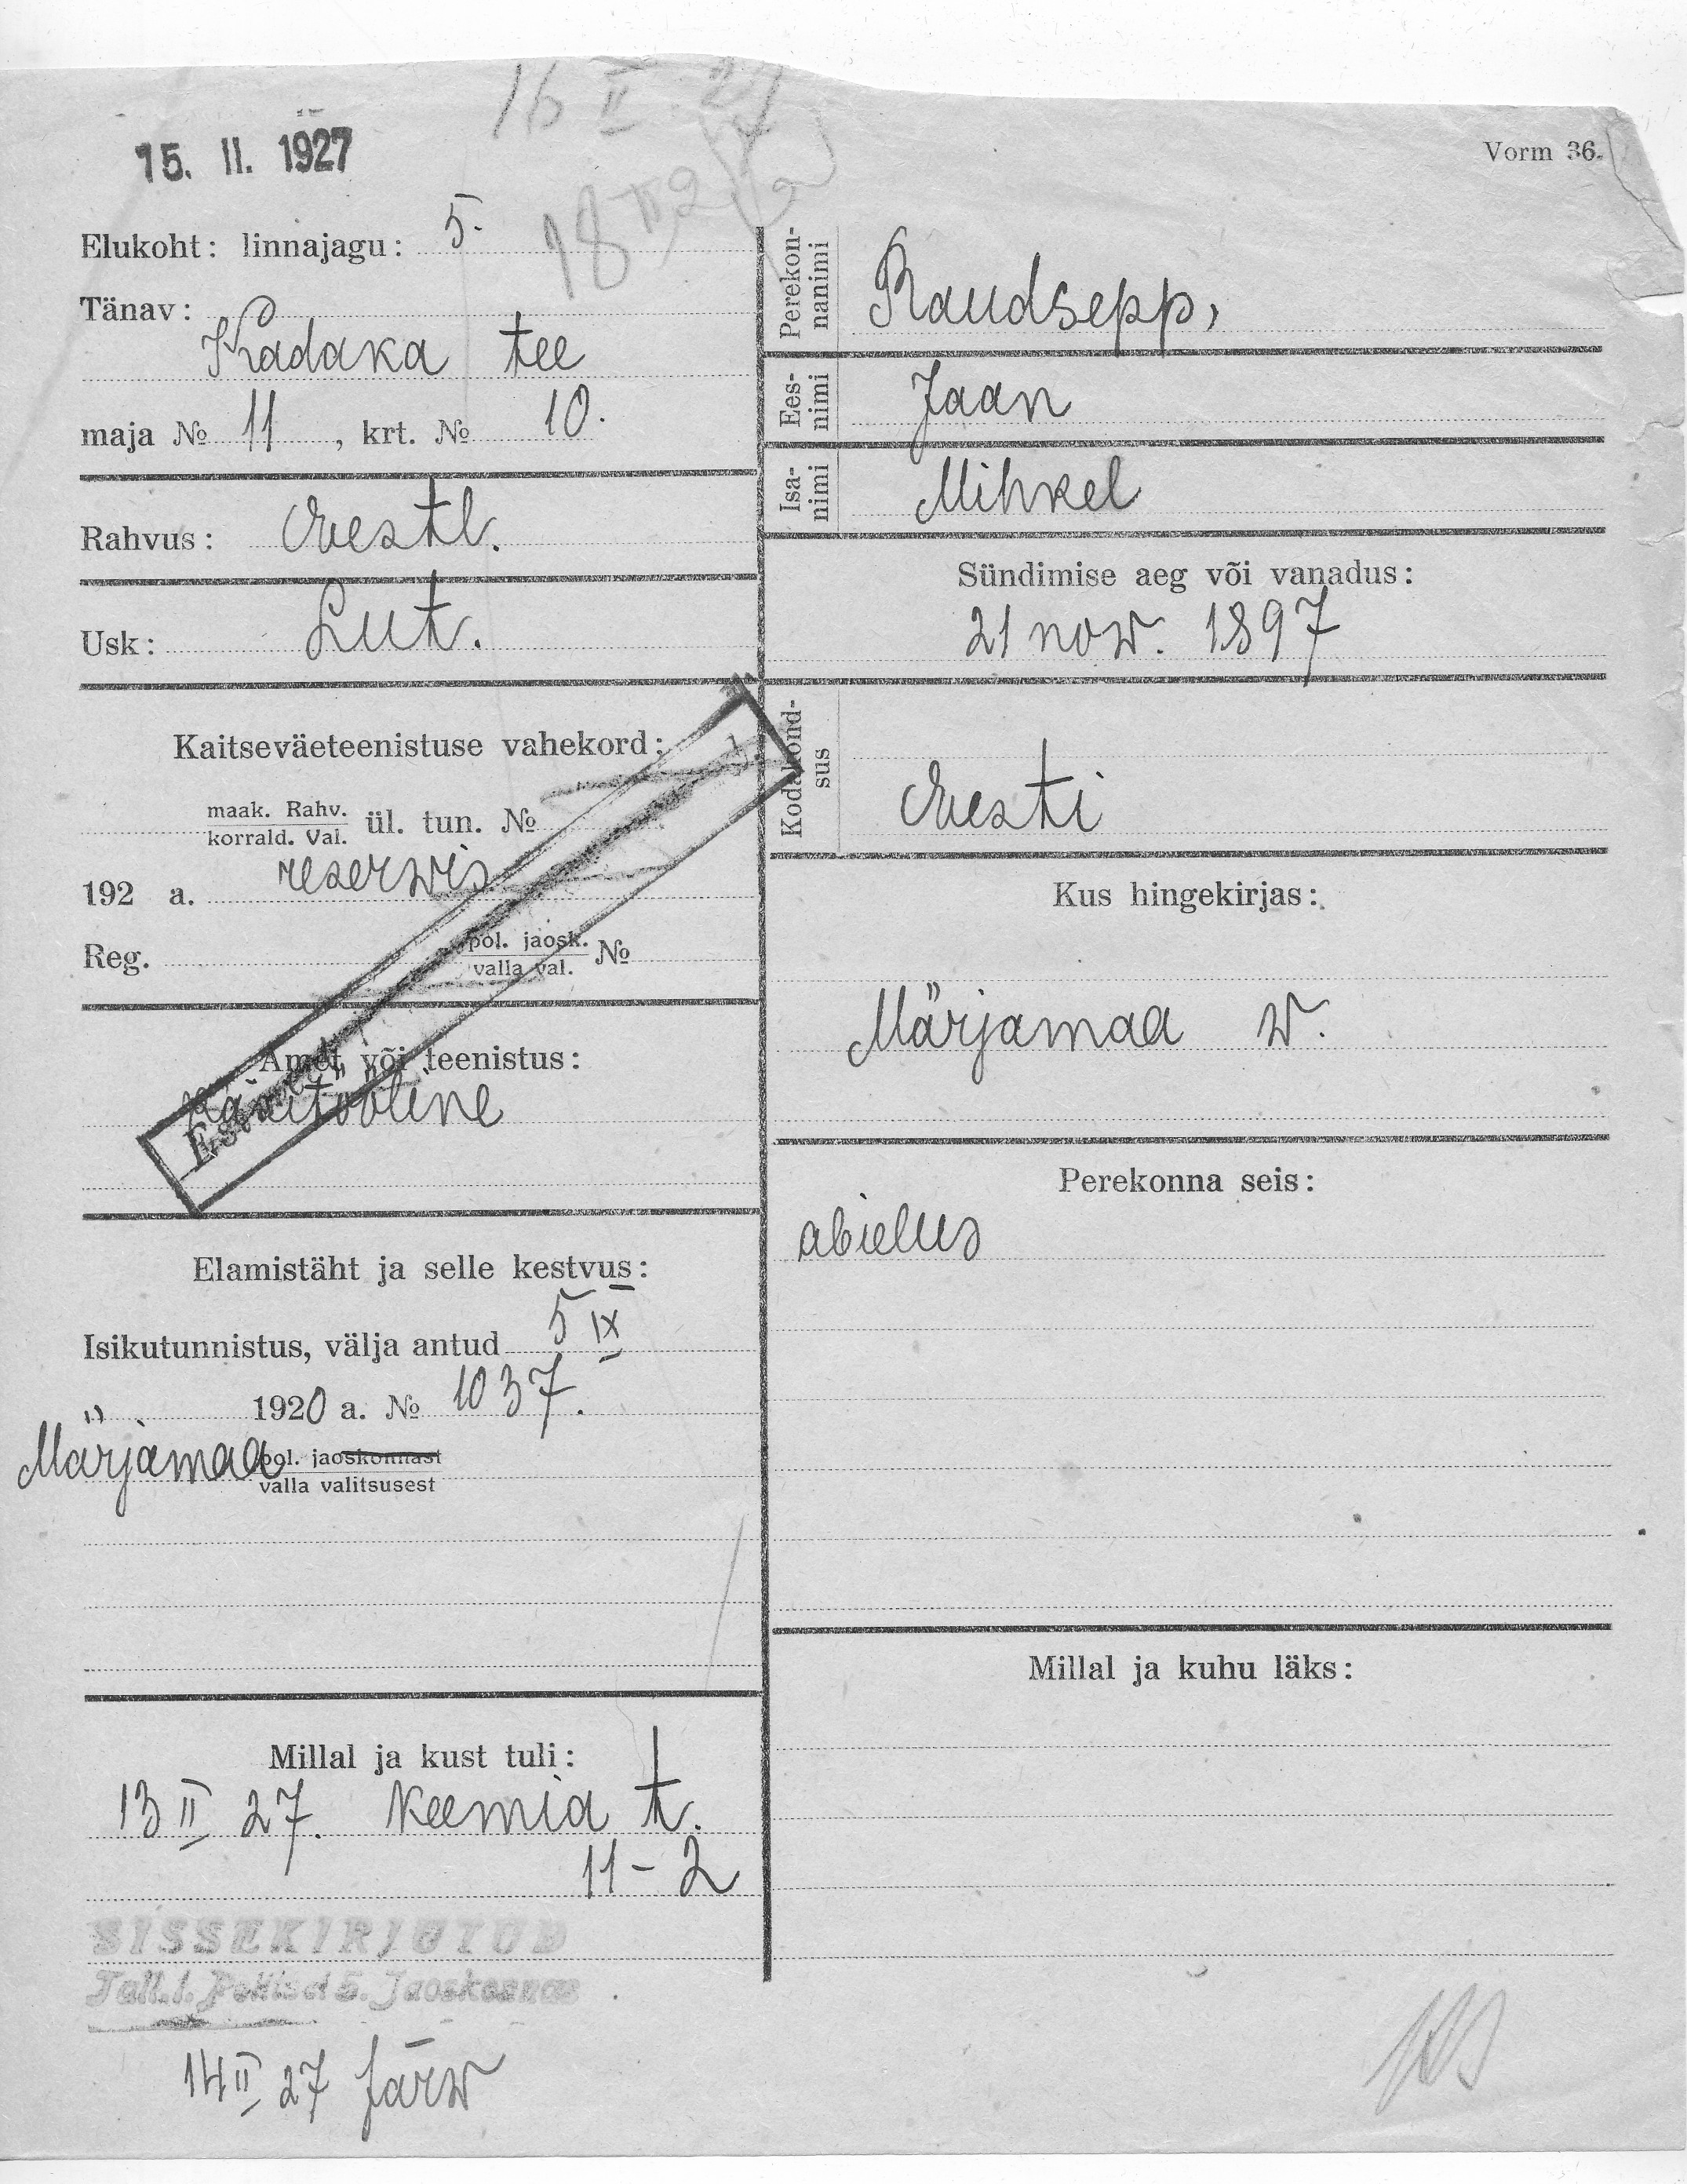 16 II 27
15. II. 1927
Vorm 36.
18 II 27
Elukoht: linnajagu: 5.
Tänav:
Kadaka tee
maja № 11, krt. № 10.
Rahvus: Eestl.
Usk: Lut.
Kaitseväeteenistuse vahekord:
maak. Rahv.
korrald. Val. ül. tun. №
192 a. reserwis
Reg. pol. jaosk.
valla val. №
Amet või teenistus:
Käsitööline
Elamistäht ja selle kestvus:
Isikutunnistus, välja antud 5 IX
" 1920 a. № 1037.
Märjamaa pol. jaoskonnast
valla valitsusest
Millal ja kust tuli:
13 II 27. Keemia t.
11-2
SISSEKIRJUTUD
Tall. l. Politsei 5. Jaoskonnas
14 II 27
Perekon-
nanimi
Raudsepp,
Ees-
nimi
Jaan
Isa-
nimi
Mihkel
Sündimise aeg või vanadus:
21 now. 1897
Kodakond-
sus
Eesti
Kus hingekirjas:
Märjamaa w.
Perekonna seis:
abielus
Millal ja kuhu läks: